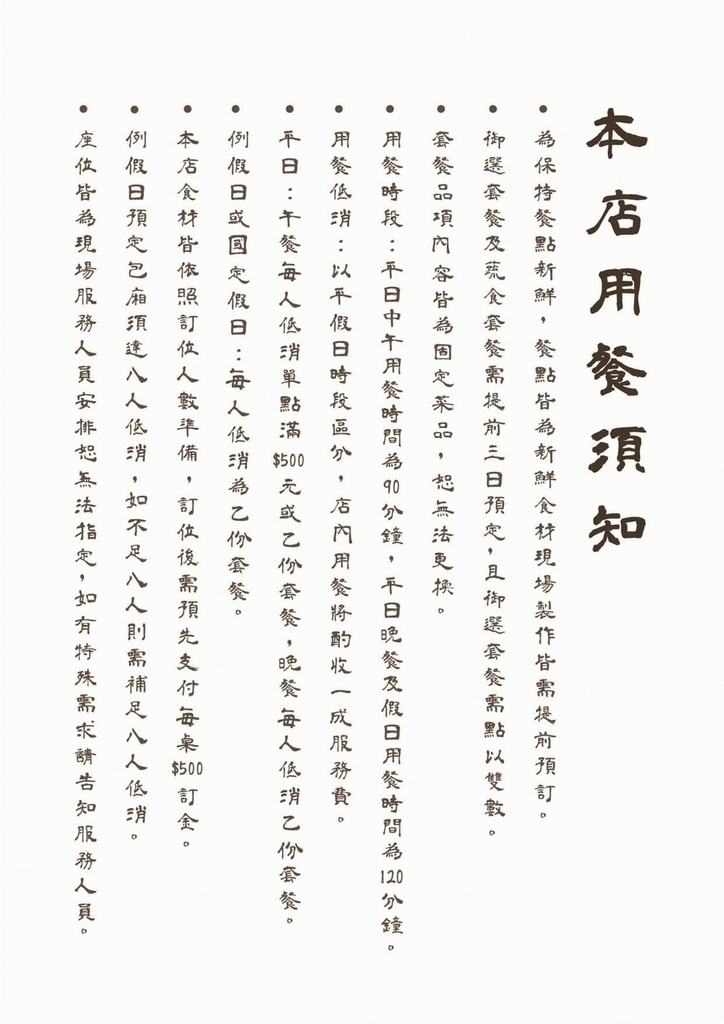 本店用餐須知
• 為保持餐點新鮮，餐點皆為新鮮食材現場製作皆需提前預訂。
• 御選套餐及蔬食套餐需提前三日預定，且御選套餐需點以雙數。
• 套餐品項內容皆為固定菜品，恕無法更換。
• 用餐時段：平日中午用餐時間為90分鐘，平日晚餐及假日用餐時間為120分鐘。
• 用餐低消：以平假日時段區分，店內用餐將酌收一成服務費。
• 平日：午餐每人低消單點滿$500元或乙份套餐，晚餐每人低消乙份套餐。
• 例假日或國定假日：每人低消為乙份套餐。
• 本店食材皆依照訂位人數準備，訂位後需預先支付每桌$500訂金。
• 例假日預定包廂須達八人低消，如不足八人則需補足八人低消。
• 座位皆為現場服務人員安排恕無法指定，如有特殊需求請告知服務人員。